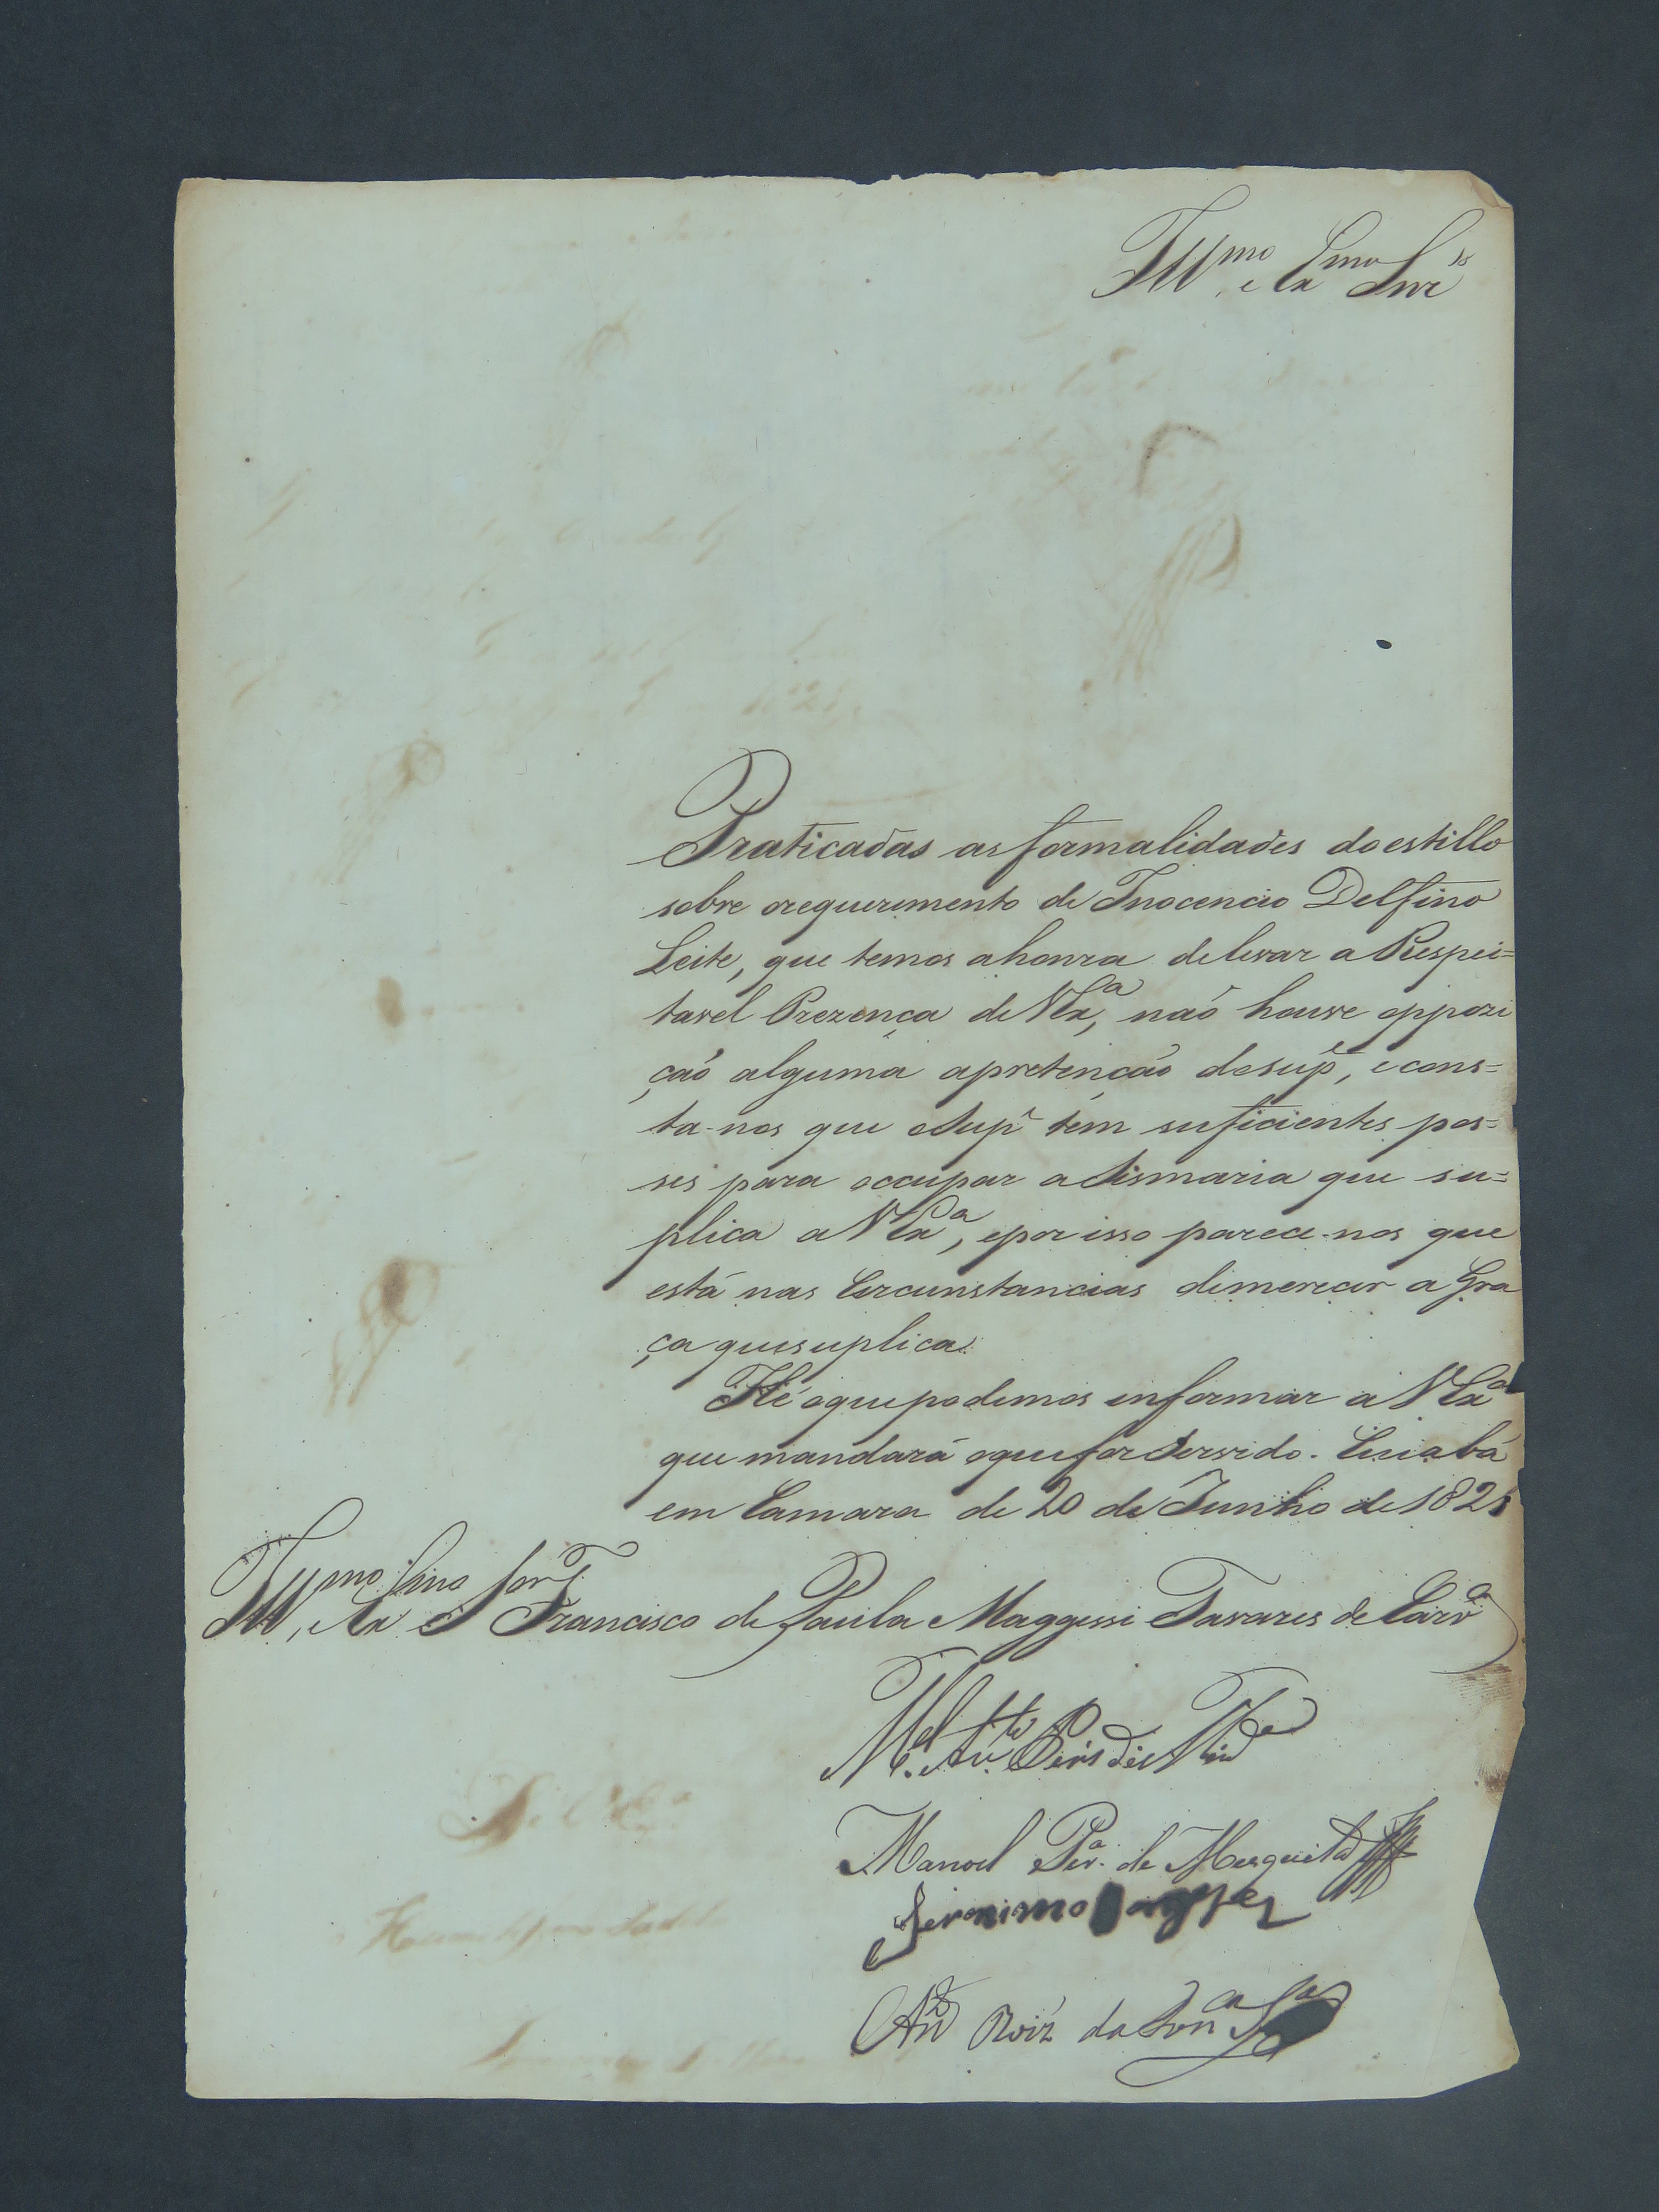 Ill.mo e Ex.mo Snr.
Praticadas as formalidades do estillo
sobre orequerimento de Inocencio Delfino
Leite, que temos ahonra delevar a Respei=
tavel Prezença de VEx.a, naõ houve oppozi
çaõ alguma apretençaõ do sup.e, e cons=
ta-nos que oSup.e tem suficientes pos=
ses para occupar a Sismaria que su=
plica a VEx.a, epor isso parece-nos que
está nas Circunstancias dimerecer a Gra
ça quesuplica.
Hé oquepodemos informar a VEx.a
que mandará oquefor Servido. Cuiabá
em Camara de 20 de Junho de 182
Ill.mo e Ex.mo Snr. Francisco de Paula Maggessi Tavares de Carv.o
M.el
Manoel Per.a de Mesquita
Jeronimo
Roiz da